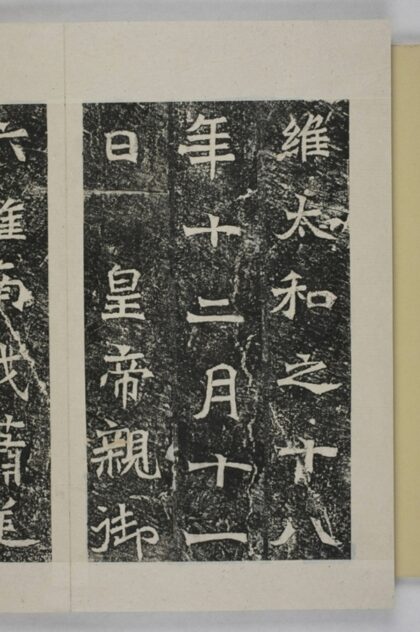 維太和之十八
年十二月十一
日　皇帝親御
六雄南伐蕭